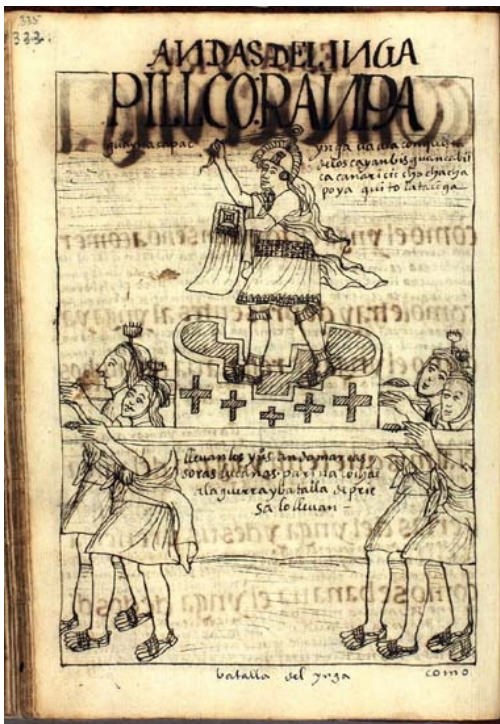 335
333
ANDAS DEL INGA
PILLCO RANPA
guayna capac ynga ua a la conquista
de los cayanbis guanca bil
ca cañari cicho chacha
poya quito lataconga
lleuan los yns andamarcas
soras lucanas parinacochas
a la guerra y batalla de prie
sa lo lleuan –
batalla del ynga como